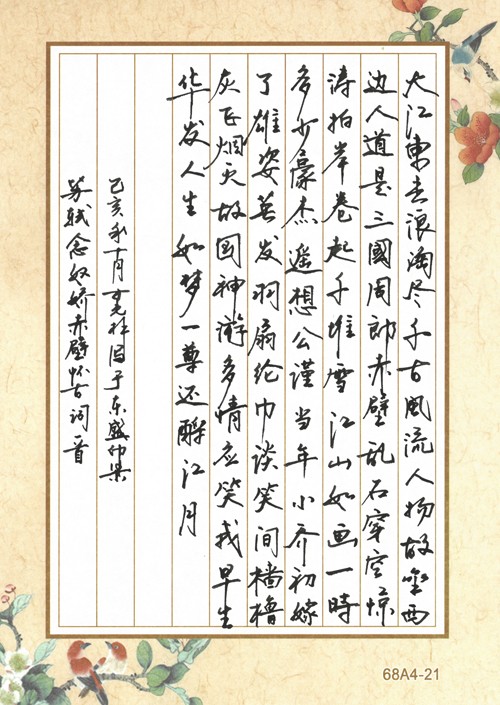 大江東去浪淘尽千古風流人物故垒西
边人道是三國周郎赤壁乱石穿空惊
涛拍岸卷起千堆雪江山如画一時
多少豪杰遥想公谨当年小乔初嫁
了雄姿英发羽扇纶巾谈笑间樯橹
灰飞烟灭故国神游多情应笑我早生
华发人生如梦一尊还酹江月
己亥秋十月于东盛印象
苏轼念奴娇赤壁怀古词一首
68A4-21